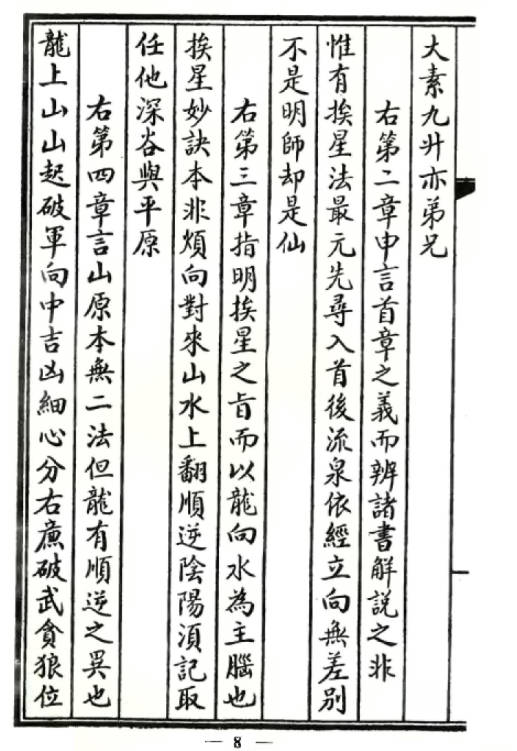 大素九升亦弟兄
右第二章申言首章之義而辨諸書解説之非
惟有挨星法最元先尋入首後流泉依經立向無差别
不是明師却是仙
右第三章指明挨星之旨而以龍向水為主腦也
挨星妙訣本非煩向對來山水上翻順逆陰陽須記取
任他深谷與平原
右第四章言山原本無二法但龍有順逆之異也
龍上山山起破軍向中吉凶細心分右廉破武貪狼位
— 8 —